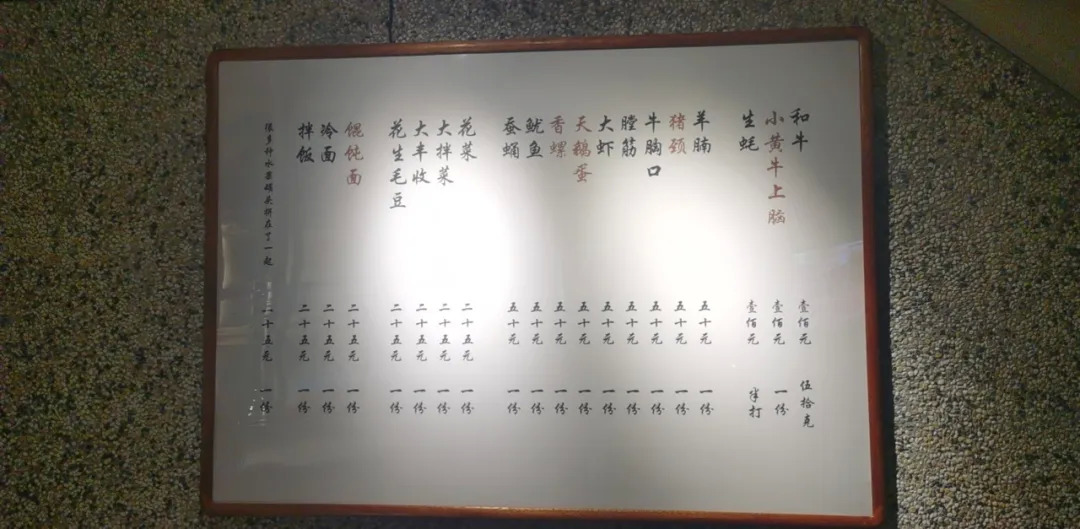 和牛 壹佰元 伍拾克
小黄牛上脑 壹佰元 一份
生蚝 壹佰元 半打
羊腩 五十元 一份
猪颈 五十元 一份
牛胸口 五十元 一份
膛筋 五十元 一份
大虾 五十元 一份
天鹅蛋 五十元 一份
香螺 五十元 一份
鱿鱼 五十元 一份
蚕蛹 五十元 一份
花菜 二十五元 一份
大拌菜 二十五元 一份
大丰收 二十五元 一份
花生毛豆 二十五元 一份
馄饨面 二十五元 一份
冷面 二十五元 一份
拌饭 二十五元 一份
很多种水果罐头拼在了一起 二十五元 一份